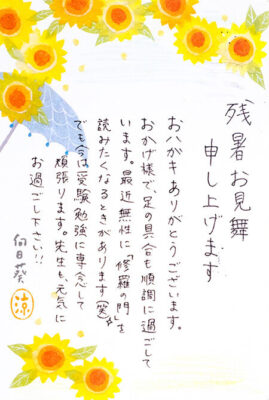 残暑お見舞
申し上げます
おハガキありがとうございます。
おかげ様で、足の具合も順調に過ごして
います。最近無性に「修羅の門」を
読みたくなるときがあります(笑)
でも今は受験勉強に専念して
頑張ります。先生も、元気に
お過ごし下さい!!
向日葵
涼